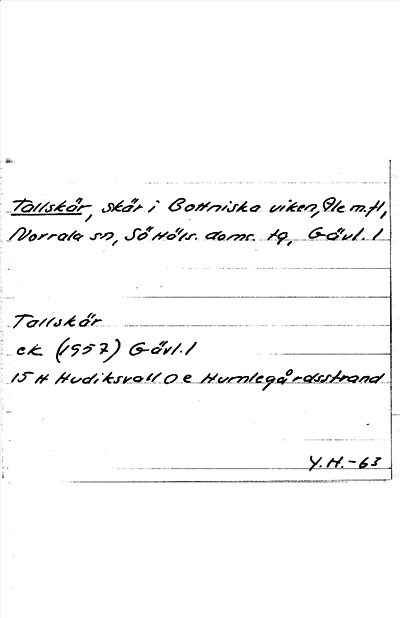 Tallskär, skär i Bottniska viken, Ale m.fl,
Norrala sn, Sö Häls. doms. tg, Gävl. l
Tallskär
ek (1957) Gävl. l
15 H Hudiksvall O e Humlegårdsstrand
Y.H.-63